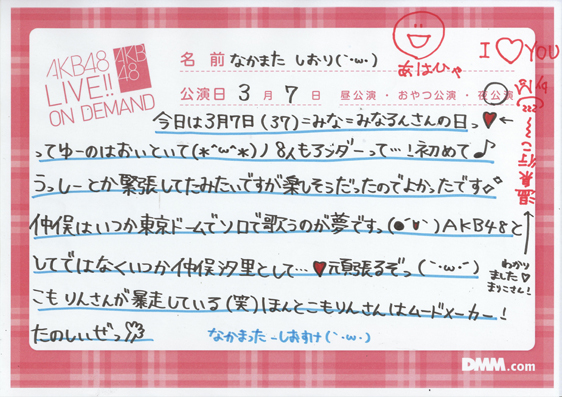 AKB48
LIVE!!
ON DEMAND
AKB
48
名前 なかまた しおり(`･ω･)
あはひゃ
I ♡ YOU
公演日 3月7日 昼公演・おやつ公演・夜公演
今日は3月7日(37)=みな=みなるんさんの日っ♥
ってゆーのはおいといて(*^ω^*)ノ 8人もアンダーって…!初めて♪
うっしーとか緊張してたみたいですが楽しそうだったのでよかったです
仲俣はいつか東京ドームでソロで歌うのが夢ですっ(●´∪`)AKB48と
してではなくいつか仲俣汐里として…♥頑張るぞっ(`･ω･´)
こもりんさんが暴走している(笑)ほんとこもりんさんはムードメーカー!
たのしいぜっ
なかまったーしおすけ(`･ω･)
温泉行こ〜
わかり
ました♡
まりこさん!
DMM.com